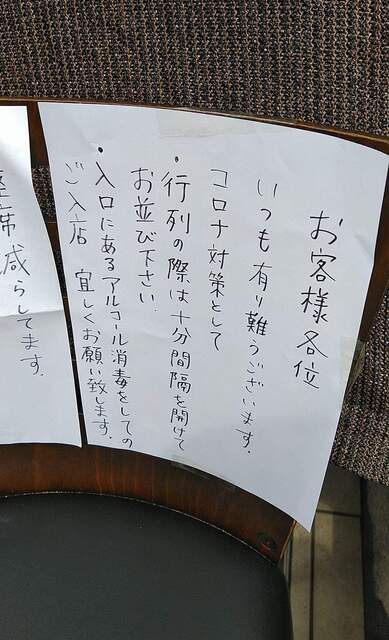 お客様各位
いつも有り難うございます.
コロナ対策として
・行列の際は十分間隔を開けて
お並び下さい.
・入口にあるアルコール消毒をしての
ご入店 宜しくお願い致します.
席減らしてます.